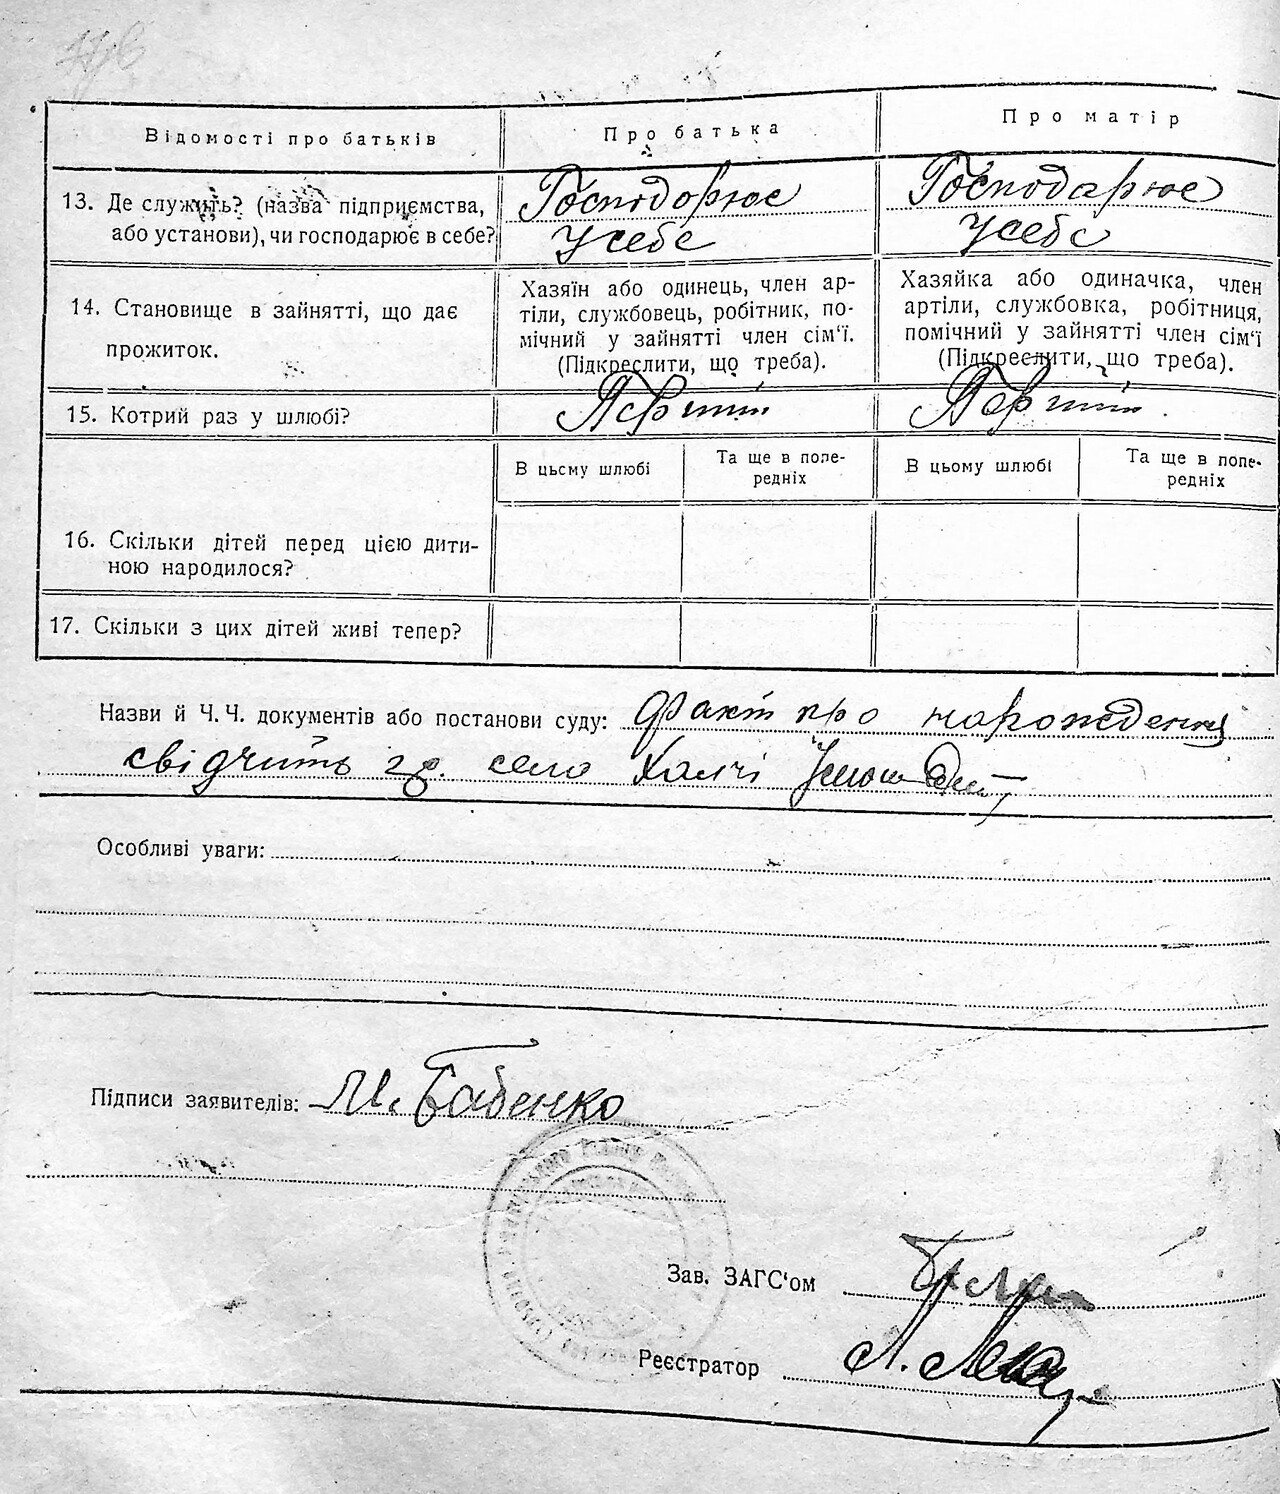 Відомості про батьків
Про батька
Про матір
13. Де служить? (назва підприємства,
або установи), чи господарює в себе?
Господорює
Усебе
Господарює
Усебе
14. Становище в зайнятті, що дає
прожиток.
Хазяїн або одинець, член ар-
тіли, службовець, робітник, по-
мічний у зайнятті член сім'ї.
(Підкреслити, що треба).
Хазяйка або одиначка, член
артіли, службовка, робітниця,
помічний у зайнятті член сім'ї
(Підкреслити, що треба).
15. Котрий раз у шлюбі?
Первий
Первий
В цьому шлюбі
Та ще в попе-
редніх
В цьому шлюбі
Та ще в попе-
редніх
16. Скільки дітей перед цією дити-
ною народилося?
17. Скільки з цих дітей живі тепер?
Назви й Ч. Ч. документів або постанови суду: Факт про нарождення
свідчить гр. село Халчі
Особливі уваги:
Підписи заявителів: М. Бабенко
Зав. ЗАГС'ом
Реєстратор